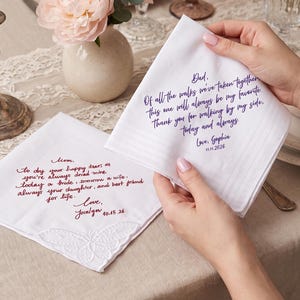 Mom,
to dry your happy tears as
you've always dried mine.
today a bride, tomorrow a wife,
always your daughter, and best friend
for life.
Love,
Jocelyn 10.15.26
Dad,
Of all the walks we've taken together
this one will always be my favorite.
Thank you for walking by my side,
today and always.
Love, Sophia
10.11.2026